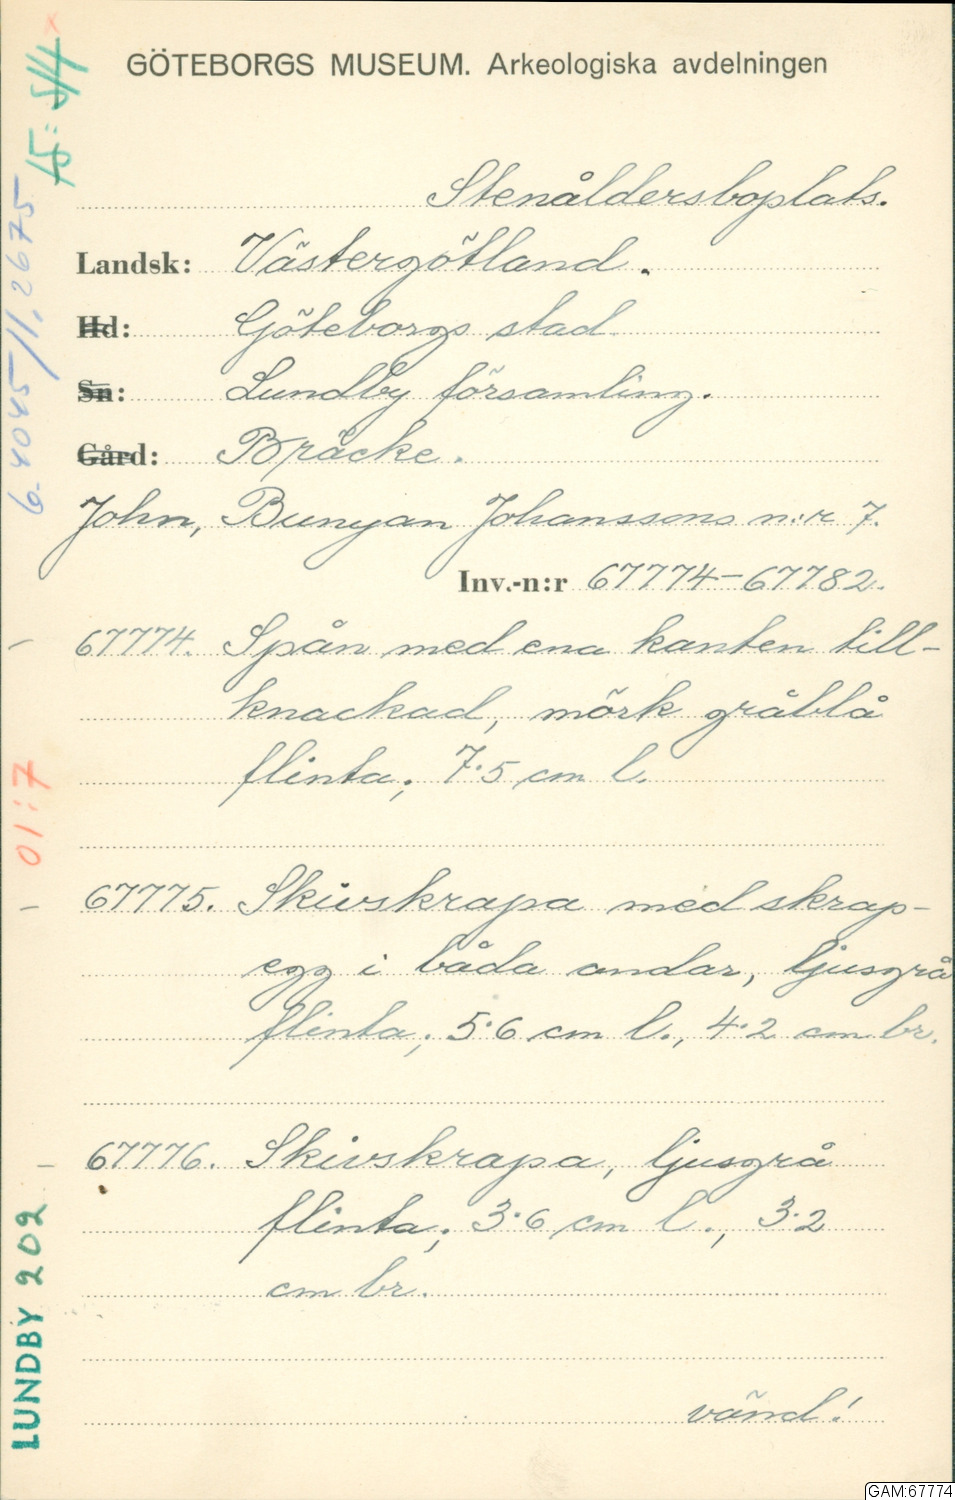 GÖTEBORGS MUSEUM. Arkeologiska avdelningen
Stenåldersboplats.
Landsk: Västergötland.
Hd: Göteborgs stad.
Sn: Lundby församling.
Gård: Bräcke.
John, Bunyan Johanssons n:r 7.
Inv.-n:r 67774-67782.
67774. Spån med ena kanten till-
knackad, mörk gråblå
flinta; 7.5 cm l.
67775. Skivskrapa med skrap-
egg i båda ändar, ljusgrå
flinta; 5.6 cm l., 4.2 cm br.
67776. Skivskrapa, ljusgrå
flinta; 3.6 cm l., 3.2
cm br.
vänd!
LUNDBY 202
01:7
6-4045/1.2675
15:5/4
GAM:67774